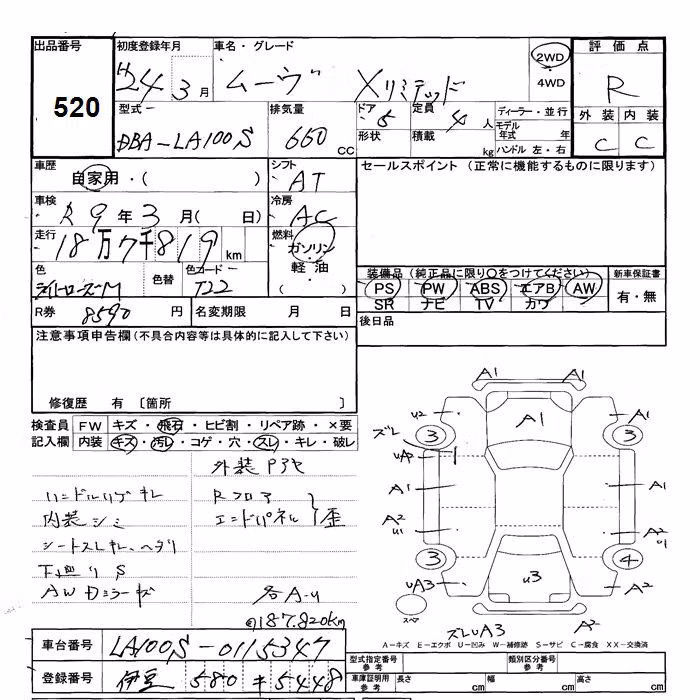 出品番号
520
初度登録年月
H24 3月
車名・グレード
ムーヴ Xリミテッド
2WD
4WD
評価点
R
外装 内装
C C
型式
DBA-LA100S
排気量
660 CC
ドア 5
形状
定員 4 人
積載 kg
ディーラー・並行
モデル年式 年
ハンドル 左・右
車歴
自家用・( )
シフト
AT
セールスポイント (正常に機能するものに限ります)
車検
R9年3月( 日)
冷房
AC
走行
18万7千819 km
燃料
ガソリン・軽油
( )
色
色替
色コード
T22
装備品 (純正品に限り○をつけてください)
PS PW ABS エアB AW
SR ナビ TV カワ
新車保証書
有・無
R券 8590 円
名変期限 月 日
後日品
注意事項申告欄(不具合内容等は具体的に記入して下さい)
修復歴 有 〔箇所 〕
検査員記入欄
FW キズ・飛石・ヒビ割・リペア跡・×要
内装 キズ・汚レ・コゲ・穴・スレ・キレ・破レ
外装
Rフロア
エンドパネル 歪
内装シミ
下廻りS
各A-U
187.820km
A1 A1
U2 A1 A1
ズレ 3 3
A1 A1
A2 U1 A2 U1
3 4
UA3 U3 A2
スペア
ズレUA3 A2
A-キズ E-エクボ U-凹み W-補修跡 S-サビ C-腐食 XX-交換済
車台番号 LA100S-0115347
登録番号 伊豆 580 キ 5448
型式指定番号 参考
類別区分番号 参考
車庫証明用 参考
長さ cm
幅 cm
高さ cm